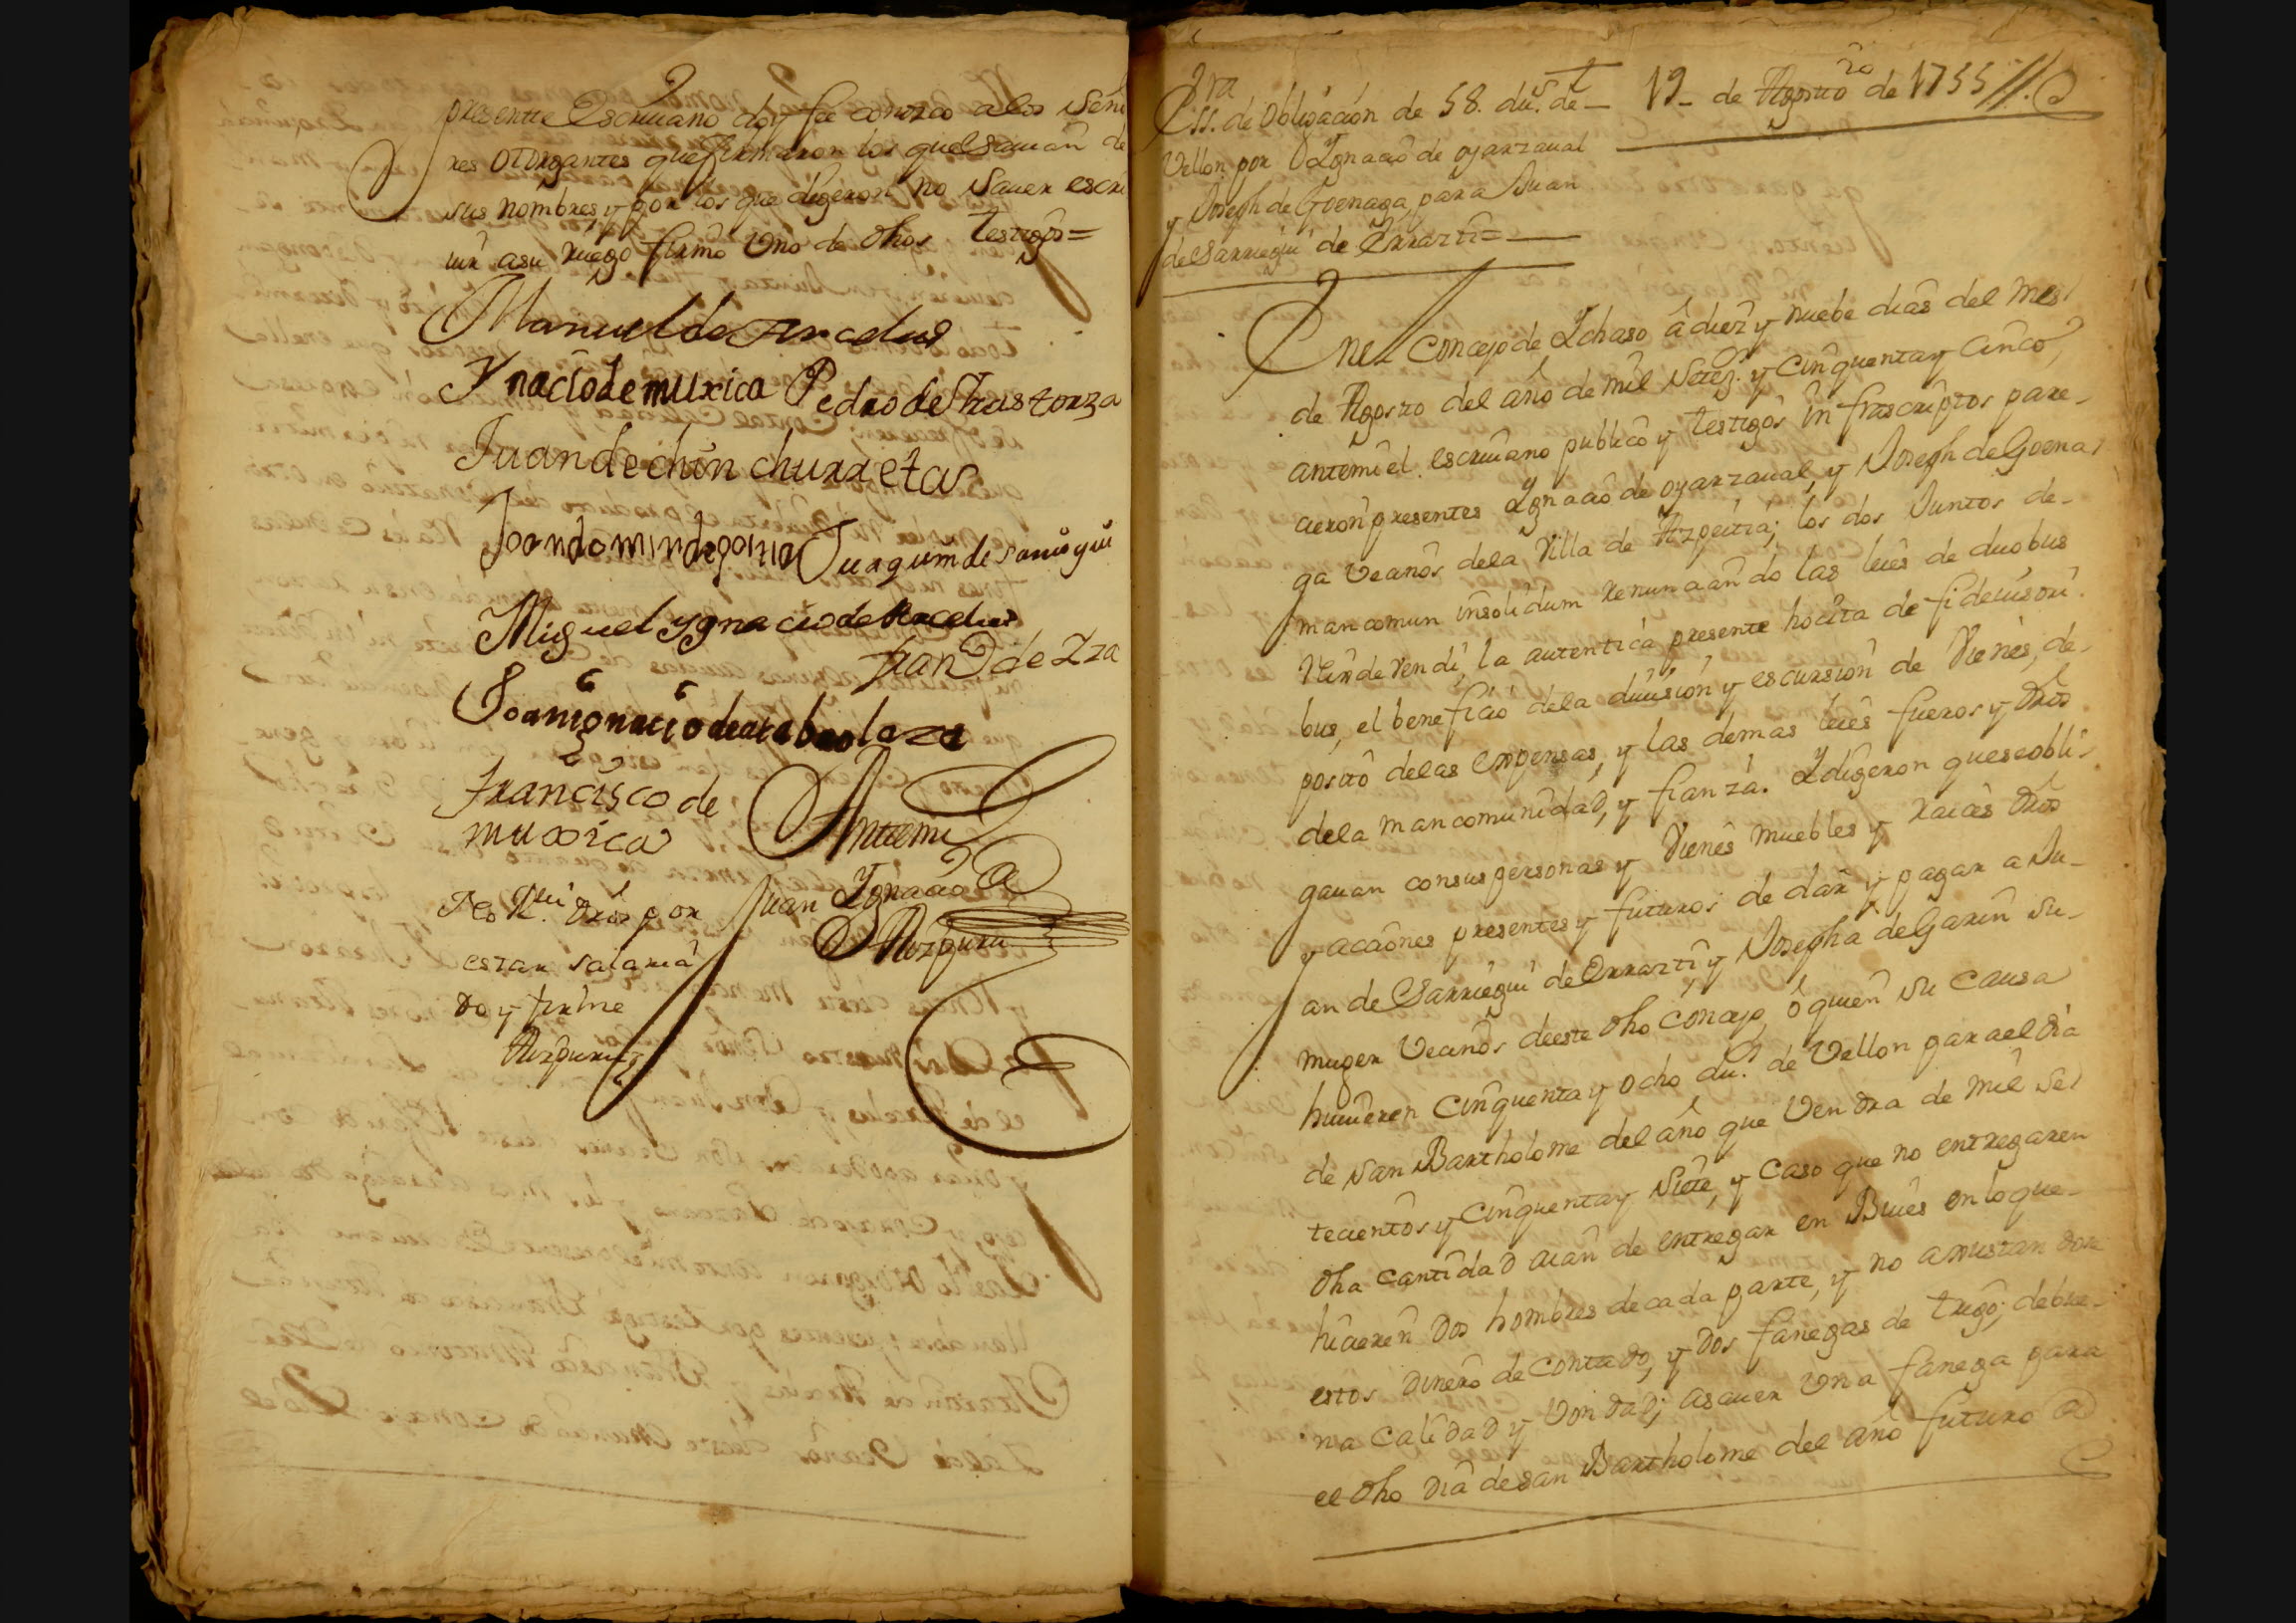 presente Escriuano doy fee conozco a los Seño
res otorgantes que firmaron los que Sauian de
sus nombres, y por los que digeron no Sauer escri
uir asu ruego firmó Vno de dhos testigos =
Manuel de Arcelus
Ynacio de muxica Pedro de Irastorza
Juan de chinchurreta
Joan domin de goitia Juaqum de sarriegui
Miguel ygnacio de Arcelus
Juan de Yza
Joan ignacio de
Francisco de
muxica
Antemi
Juan Ygnacio
de Aizpuru
No Rui dros por
estar salaria
do y firme
Aizpuru
Essra de obligacion de 58. dus. de
Vellon por Ygnacio de oyarzaual
y Joseph de Goenaga, para Juan
de Sarriegui de Errazti =
19 de Agosto de 1755 //.
En el Concejo de Ychaso â diez y nuebe dias del mes
de Agosto del año de mil Setez. y Cinquenta y Cinco,
antemi el escriuano publico y testigos infrascriptos pare-
cieron presentes Ygnacio de oyarzaual, y Joseph de Goena
ga Vecinos dela Villa de Azpeitia; los dos Juntos de-
mancomun insolidum renunciando las leies de duobus
rex de vendi, la autentica presente hocita de fideiusori
bus, el beneficio dela diuision y escursion de Vienes, de-
posito delas expensas, y las demas leies fueros y dros
dela mancomunidad, y fianza. Y digeron que se obli-
gauan consus personas y Vienes muebles y raices dros
y acciones presentes y futuros de dar y pagar a Ju-
an de Sarriegui de Errazti y Josepha de Garin Su-
muger Vecinos deeste dho Concejo, ô quien Su Causa
huuieren Cinquenta y ocho dus. de Vellon para el dia
de San Bartholome del año que Vendra de mil Se
tecientos y Cinquenta y Siete, y Caso que no entregaren
dha Cantidad aian de entregar en Bueies en lo que
hicieren dos hombres decada parte, y no
estos dinero de contado, y dos fanegas de trigo; debue-
na Calidad y Vondad; asauer Vna fanega para
el dho dia de San Bartholome del año futuro